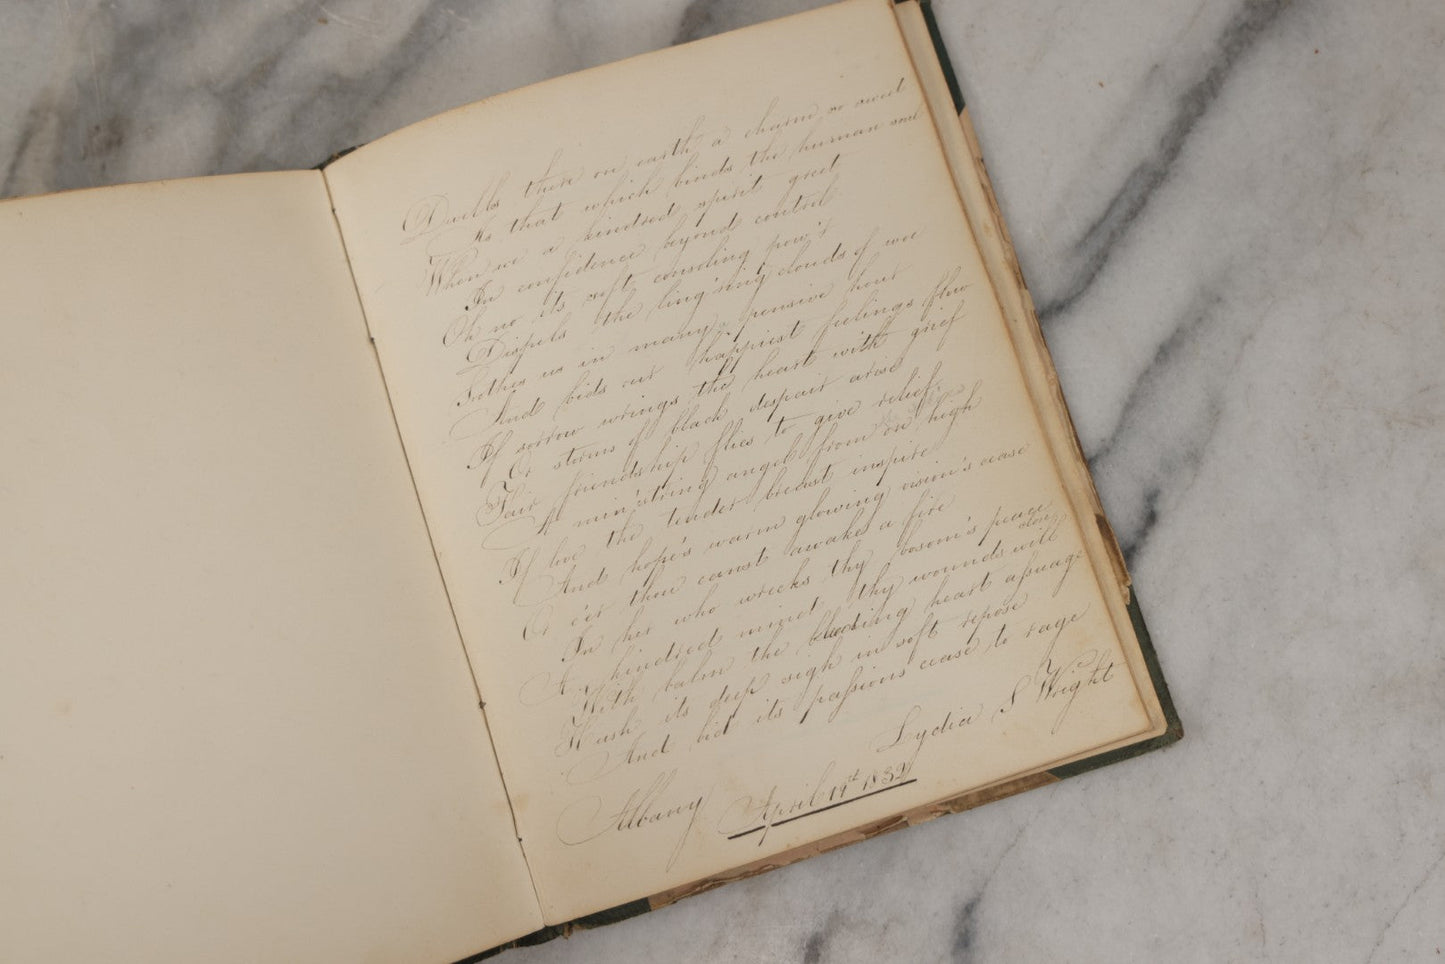 Dwells there on earth a charm so sweet
As that which binds the human soul
When we a kindred spirit greet
In confidence beyond control
Oh no its soft consoling pow'r
Dispels the ling'ring clouds of woe
Sothes us in many a pensive hour
And bids our happiest feelings flow
If sorrow wrings the heart with grief
Or storms of black despair arise
Fair friendship flies to give relief
A min'string angel from on high
If love the tender breast inspire
And hope's warm glowing vision's cease
Or o'er thou canst awake a fire
In her who wrecks thy bosom's peace
A kindred mind thy wounds will close
With balm the bleeding heart assuage
Hush its deep sigh in soft repose
And bid its passions cease to rage
Lydia S Wright
Albany April 19th 1832